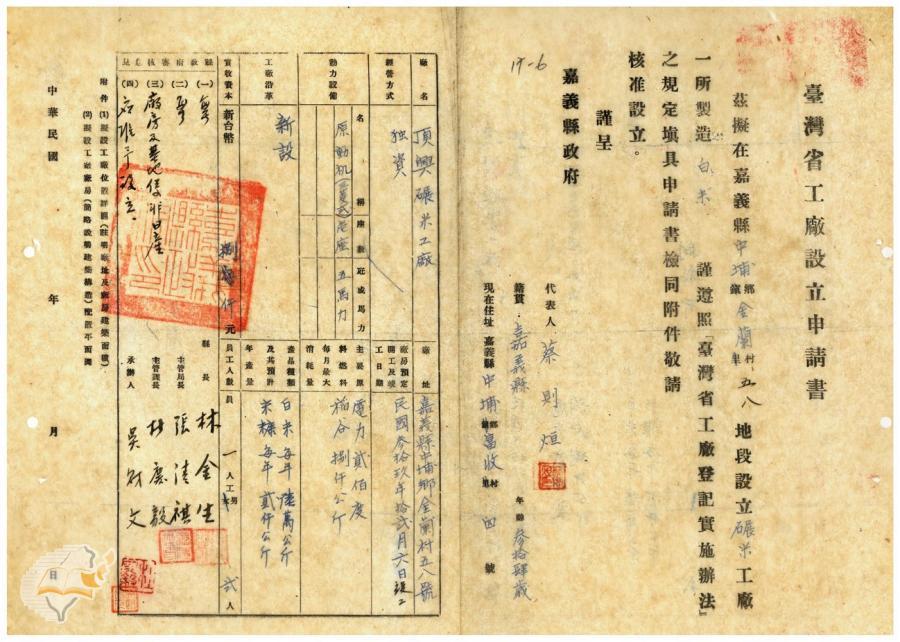 臺灣省工廠設立申請書
茲擬在嘉義縣中埔鄉鎮金蘭村里五八地段設立碾米工廠
一所製造白米 謹遵照「臺灣省工廠登記實施辦法」
之規定塡具申請書檢同附件敬請
核准設立。
謹呈
嘉義縣政府
代表人 蔡則烜
年齡 參拾肆歲
籍貫 嘉義縣
現在住址 嘉義縣中埔鄉鎮富收村里四號
17-6
廠名 頂興碾米工廠
廠址 嘉義縣中埔鄉金蘭村五八號
經營方式 独資
廠房預定開工及竣工日期 民國叁拾玖年拾貳月六日竣工
動力設備
名稱 座數 近成馬力
原動机 壱座 五馬力
主要原料燃料每月最大消耗量
電力 貳佰度
稲谷 捌仟公斤
工廠沿革 新設
產品種類及其預計年產量
白米 每年 陸萬公斤
米糠 每年 貳仟公斤
實收資本 新台幣 捌萬仟元
員工人數 員一人 工男 弍人
縣政府審核意見
(一)
(二)
(三) 廠房及基地係非日產
(四) 应准予設立
縣長 林金生
主管局長 張清祺
主管課長 林慶毅
承辦人 吳財文
附件 (1) 擬設工廠位置詳圖(註明廠址及廠房建築面積)
(2) 擬設工廠廠房(簡略設備建築構造)配置平面圖
中華民國 年 月 日